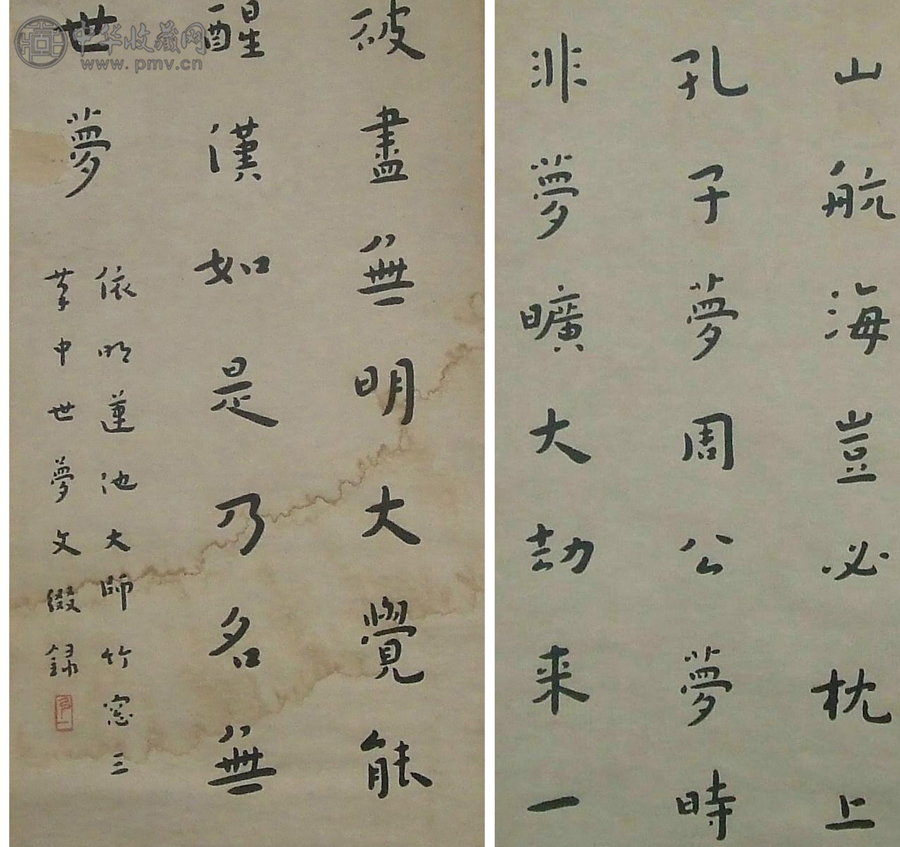 山航海豈必枕上
孔子夢周公夢時
非夢曠大劫来一
破盡無明大覺能
醒漢如是乃名無
世夢
依明蓮池大師竹窓三
筆中世夢文綴録
中华收藏网
www.pmv.cn